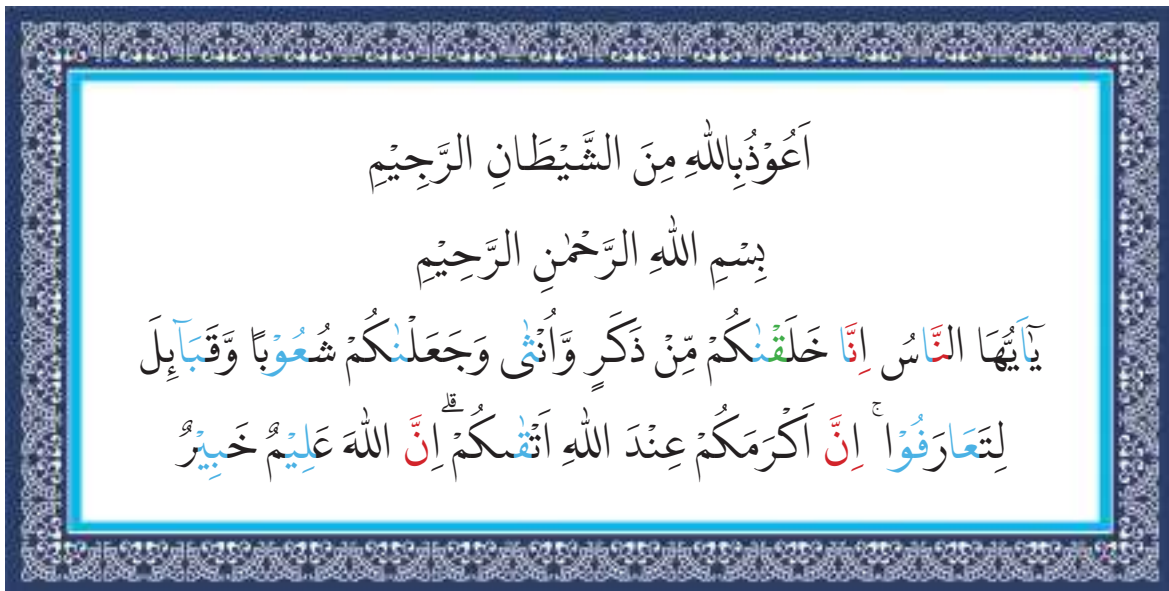 اَعُوْذُبِاللّٰهِ مِنَ الشَّيْطَانِ الرَّجِيْمِ
بِسْمِ اللّٰهِ الرَّحْمٰنِ الرَّحِيْمِ
يٰٓاَيُّهَا النَّاسُ اِنَّا خَلَقْنٰكُمْ مِّنْ ذَكَرٍ وَّاُنْثٰى وَجَعَلْنٰكُمْ شُعُوْبًا وَّقَبَاۤىِٕلَ
لِتَعَارَفُوْا ۚ اِنَّ اَكْرَمَكُمْ عِنْدَ اللّٰهِ اَتْقٰىكُمْ ۗ اِنَّ اللّٰهَ عَلِيْمٌ خَبِيْرٌ